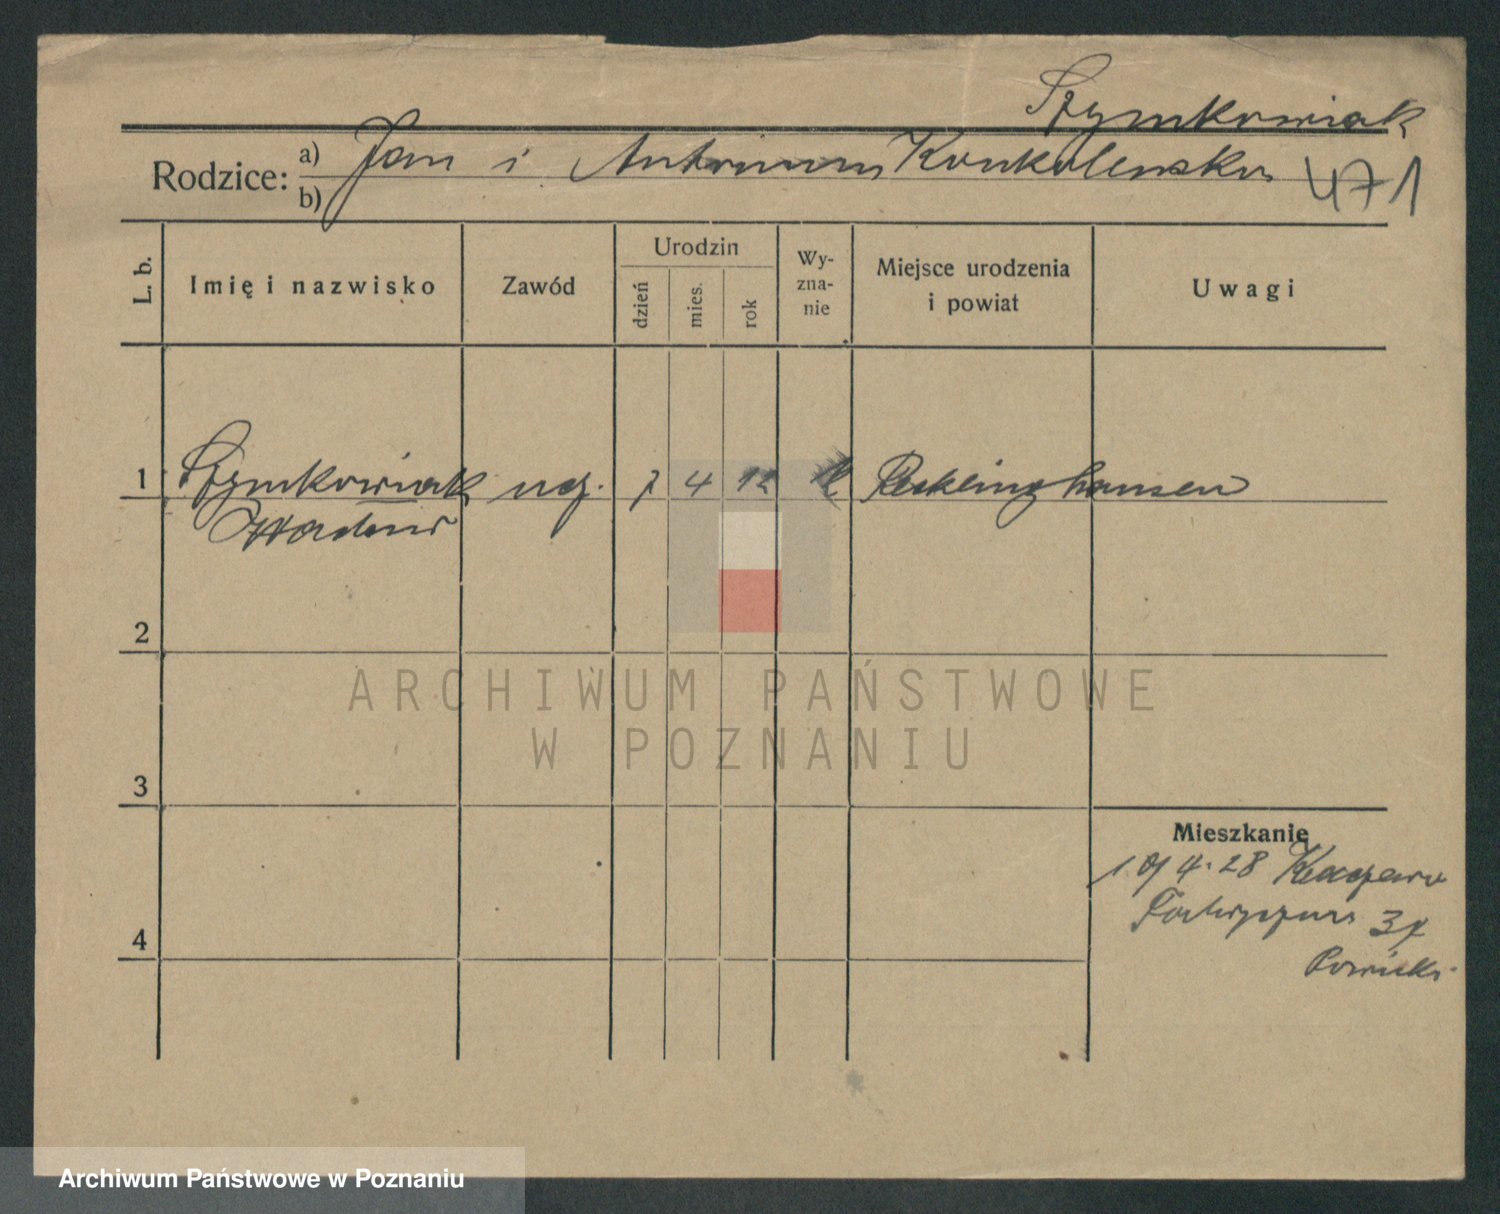 Szymkowiak
Rodzice: a) Jan i Antonina Konkolewska
b)
471
L. b.
Imię i nazwisko
Zawód
Urodzin
dzień
mies.
rok
Wy-
zna-
nie
Miejsce urodzenia
i powiat
Uwagi
1 Szymkowiak ucz. 7 4 12 k Recklinghausen
2
3
4
Mieszkanie
4.28
37
ARCHIWUM PAŃSTWOWE
W POZNANIU
Archiwum Państwowe w Poznaniu